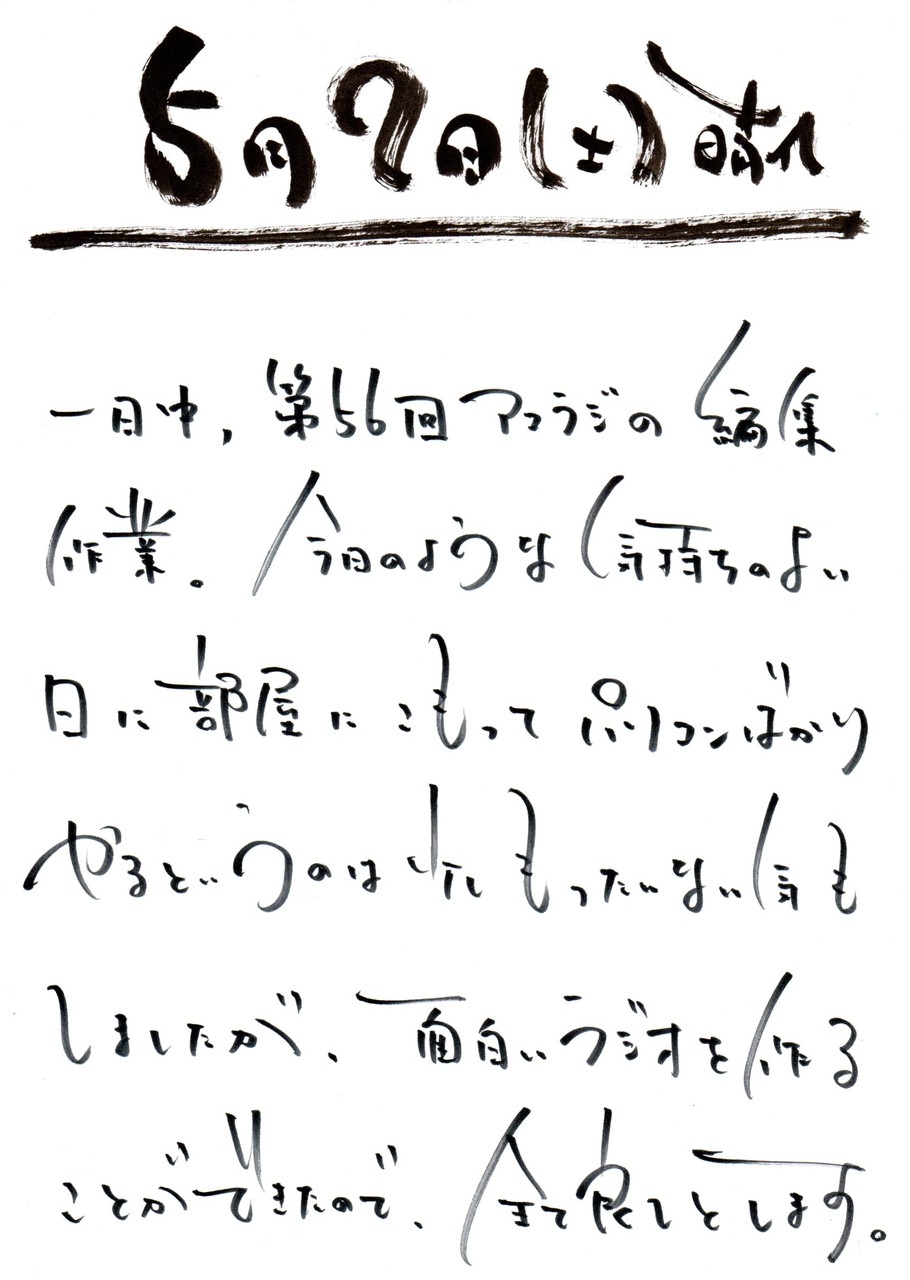 5月7日(土)晴れ
一日中,第56回アコラジの編集
作業。今日のような気持ちのよい
日に部屋にこもってパソコンばかり
やるというのは少しもったいない気も
しましたが、面白いラジオを作る
ことができたので、全て良しとします。